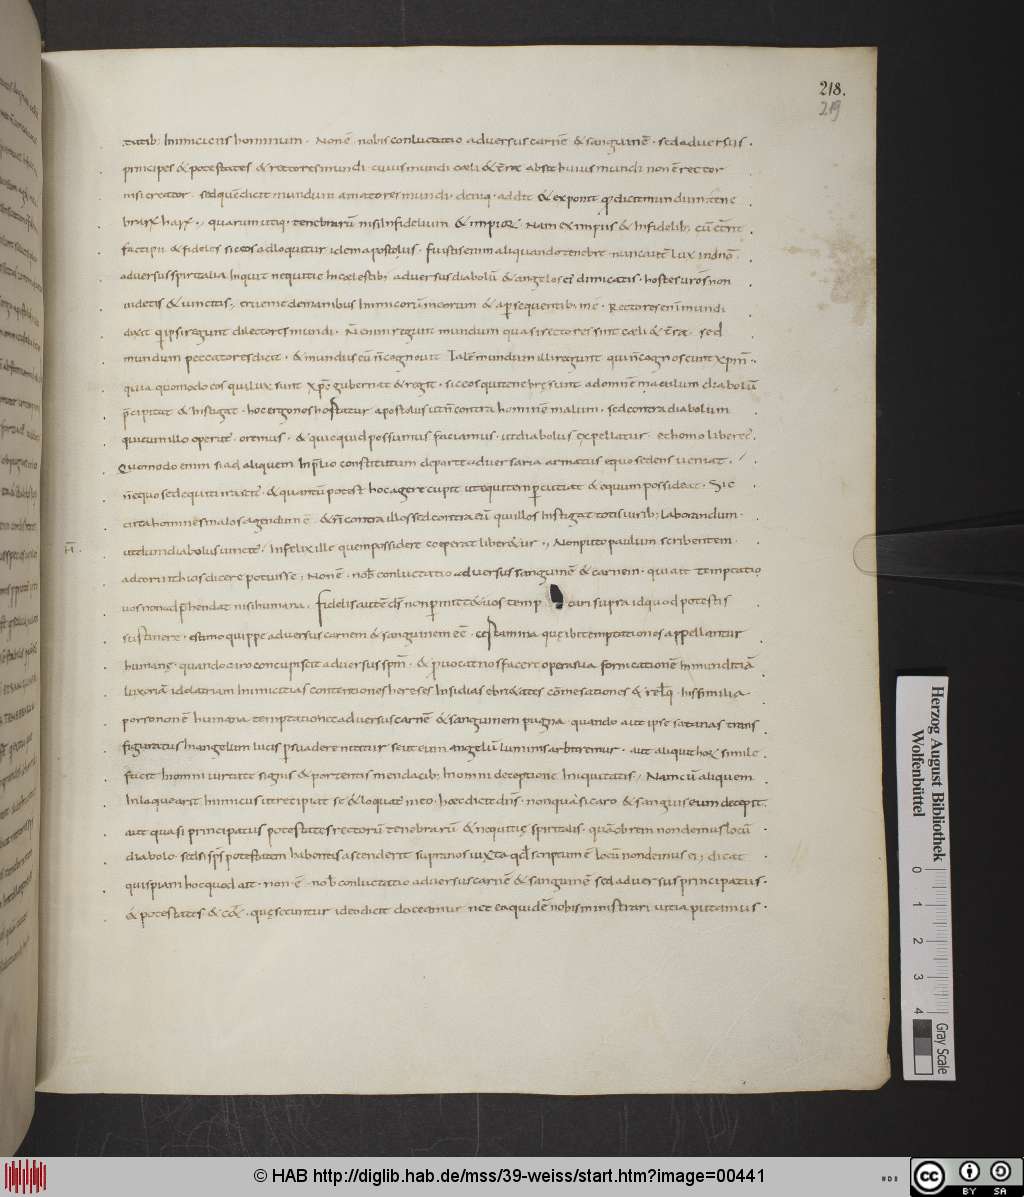 218.
219
tatib; inimiciens hominum. Non ē nobis conluctatio adversus carnē & sanguinē. sed adversus
principes & potestates & rectores mundi. cuius mundi cæli & t̄ræ absit huius mundi non ē rector
nisi creator. sed quē dicit mundum amatores mundi. deniq; addit & exponit
quarum utiq; tenebrarū nisi infidelium & impior. Nam ex impiis & infidelib;
factipii & fideles sic eos adloquitur idem apostolus. fuistis enim aliquando tenebre nunc aut̄ lux in dnō.
adversus spiritalia inquit nequitie in cælestib; adversus diabolū & angelos ei dimicatis. hostes ur̄os non
uidetis & uincitis., erue me de manibus inimicorū meorum & a p̄sequentib; me. Rectores enī mundi
dixit qui ipsi regunt dilectores mundi. Nō enim regunt mundum quasi rectores sint cæli & t̄ræ. sed
mundum peccatores dicit. & mundus eū n̄ cognovit talē mundum illi regunt qui n̄ cognoscunt xpm̄.
quia quomodo eos qui lux sunt xp̄s gubernat & regit. sic eos qui tenebrę sunt ad omne malum diabolus
p̄cipitat & instigat. hoc ergo nos hostatur apostolus ut n̄ contra hominē malum. sed contra diabolum
qui cum illo operat̄. oremus. & quicquid possumus faciamus. ut diabolus expellatur. et homo liberet̄.
Quomodo enim si ad aliquem in p̄lio constitutum de parte adversaria armatus equo sedens veniat.
n̄ equo sed equiti irascit̄. & quantū potest hoc agere cupit ut equitem percutiat & equum possideat. Sic
circa homines malos agendum ē. & n̄ contra illos sed contra eū qui illos instigat totis uirib; laborandum.
ut dum diabolus uincit̄. infelix ille quem possidere coeperat liber&ur., Non puto paulum scribentem
ad corinthios dicere potuisse; Non ē. nob̄ conluctatio adversus sanguinē & carnem. qui ait temptatio
uos non adp̄hendat nisi humana. fidelis autē d̄s non p̄mitt& uos temp cari supra id quod potestis
sustinere. estimo quippe adversus carnem & sanguinem eē. certamina quę ibi temptationes appellantur
humanę. quando caro concupiscit adversus spm̄. & p̄vocat nos facere opera sua fornicationē inmunditiā
luxoriā idolatriam inimicitias contentiones hereses insidias ebri&ates cōmesationes & reliq̄. his similia
porro non ē humana temptatio nec adversus carnē & sanguinem pugna. quando aut ipse satanas trans
figuratus in angelum lucis p̄suadere nititur se ut eum angelū luminis arbitremur. aut aliquit hor simile
facit in omni uirtute signis & portentis mendacib; in omni deceptione iniquitatis; Nam cū aliquem
inlaquearit inimicus ut recipiat se & loquat̄ in eo. hæc dicit dn̄s. non quasi caro & sanguis eum decepit.
aut quasi principatus potestates rectorū tenebrarū & nequitię spiritalis. quāobrem non demus locū
diabolo. sed si sp̄s potestatem habentis ascenderit supra nos iuxta qd̄ scriptum ē locū non demus ei; dicat
quispiam hoc quod ait. non ē nob̄ conluctatio adversus carnē & sanguinē sed adversus principatus.
& potestates & cet̄. quę secuntur ideo dicit doceamur nec ea quidē nobis ministrari uitia putamus.
Herzog August Bibliothek
Wolfenbüttel
0 1 2 3 4
Gray Scale
© HAB http://diglib.hab.de/mss/39-weiss/start.htm?image=00441
cc BY SA